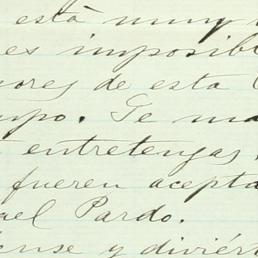 está muy
es imposibl
ores de esta
upo. Te ma
entretengas
fueren acepta
ael Pardo.
ense y diviért